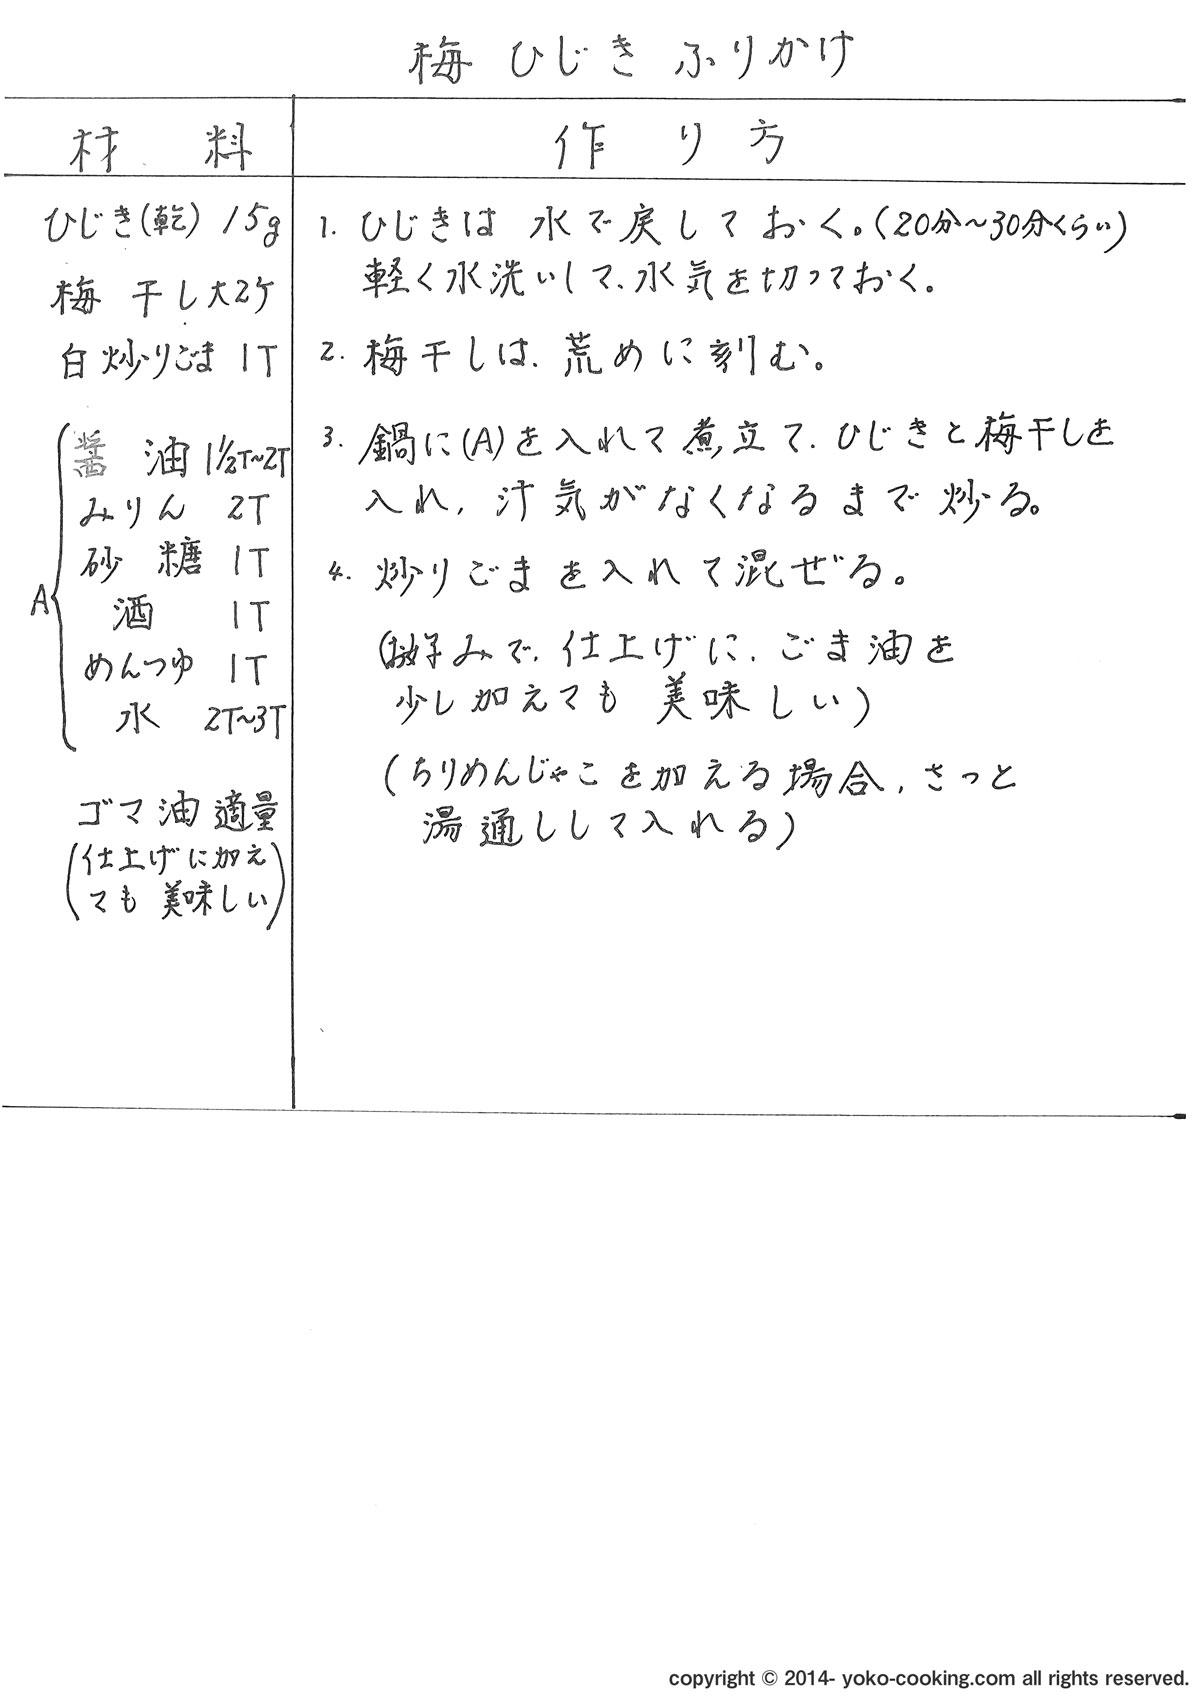 梅 ひじき ふりかけ
材 料
作 り 方
ひじき(乾) 15g
梅 干し大2ケ
白炒りごま 1T
A
醤 油 1½T~2T
みりん 2T
砂 糖 1T
酒 1T
めんつゆ 1T
水 2T~3T
ゴマ油 適量
(仕上げに加え
ても 美味しい)
1. ひじきは 水で戻しておく。(20分~30分くらい)
軽く水洗いして、水気を切っておく。
2. 梅干しは、荒めに刻む。
3. 鍋に(A)を入れて煮立て、ひじきと梅干しを
入れ、汁気がなくなるまで炒る。
4. 炒りごまを入れて混ぜる。
(お好みで、仕上げに、ごま油を
少し加えても 美味しい)
(ちりめんじゃこを加える場合、さっと
湯通しして入れる)
copyright © 2014- yoko-cooking.com all rights reserved.